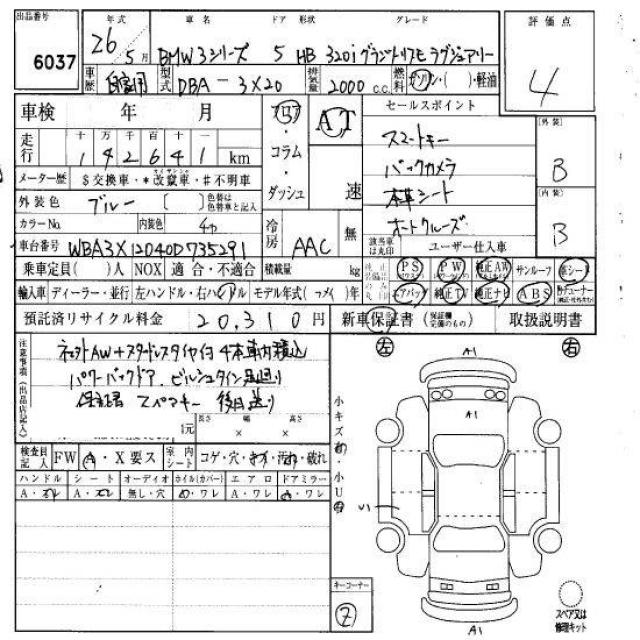 出品番号 年式 車名 ドア 形状 グレード 評価点
6037 26 5月 BMW3シリーズ 5 HB 320i グランツーリスモ ラグジュアリー 4
車歴 自家用 型式 DBA-3X20 排気量 2000 c.c. 燃料 ガソリン・( )・軽油
車検 年 月 F5・コラム・ダッシュ AT 速 セールスポイント
走行 十 万 千 百 十 一
1 4 2 6 4 1 km
スマートキー [外装]
バックカメラ B
本革シート [内装]
オートクルーズ B
メーター歴 $交換車・*改竄車・#不明車
外装色 ブルー ( ) 色替は色替車と記入
カラーNo. 内装色 冷房 AAC 無
車台番号 WBA3X12040D735291 該当車は丸印 ユーザー仕入車
乗車定員( )人 NOX 適合・不適合 積載量 kg PS PW 純正AW サンルーフ 革シート
輸入車 ディーラー・並行 左ハンドル・右ハンドル モデル年式( )年 エアバッグ 純正TV 純正ナビ ABS
預託済リサイクル料金 20,310円 新車保証書 (保証欄完備のもの) 取扱説明書
注意事項(出品店記入)
ネットAW+スタッドレスタイヤ付 4本車内積込
パワーバックドア、ビルシュタイン足廻り
保証書 スペアキー 後日送り
1元 長さ × 幅 × 高さ
左 右
A1
A1
小キズ 小U
検査員記入 FW A・X要ス 室内シート コゲ・穴・キズ・汚れ・破れ
ハンドル シート オーディオ ホイル(カバー) エアロ ドアミラー
A・スレ A・スレ 無し・穴 ワレ A・ワレ A・ワレ
キーコーナー
2
A1
スペア又は修理キット